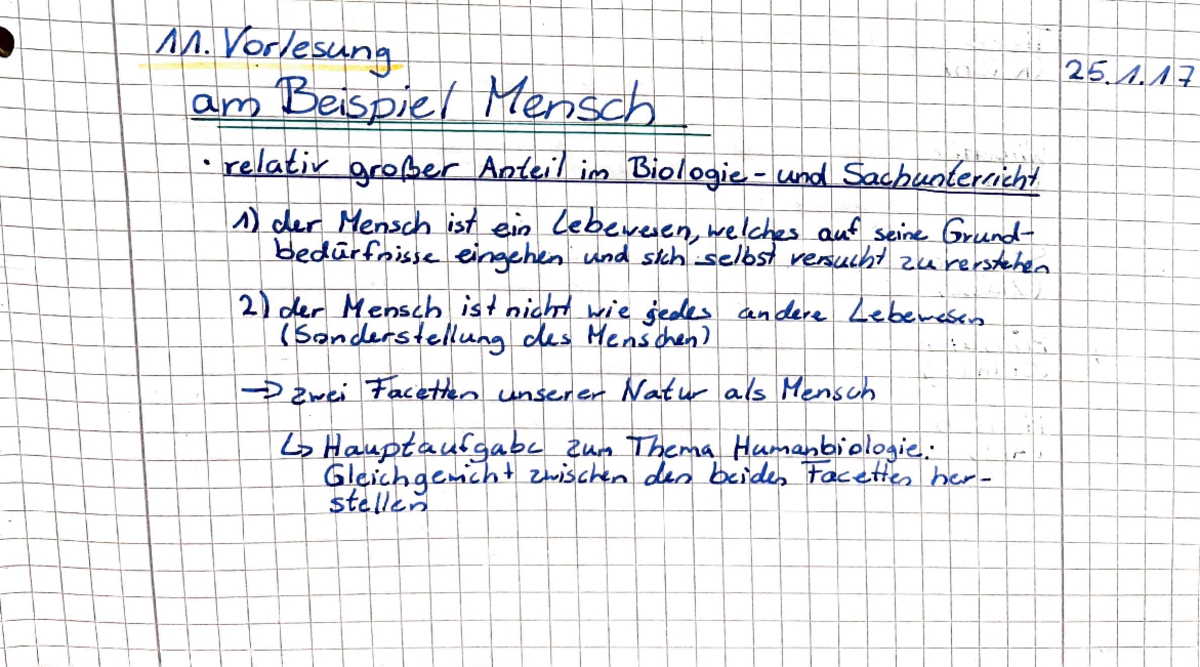 11. Vorlesung
25.1.17
am Beispiel Mensch
· relativ großer Anteil im Biologie- und Sachunterricht
1) der Mensch ist ein Lebewesen, welches auf seine Grund-
bedürfnisse eingehen und sich selbst versucht zu verstehen
2) der Mensch ist nicht wie jedes andere Lebewesen
(Sonderstellung des Menschen)
→ zwei Facetten unserer Natur als Mensch
↳ Hauptaufgabe zum Thema Humanbiologie:
Gleichgewicht zwischen den beiden Facetten her-
stellen